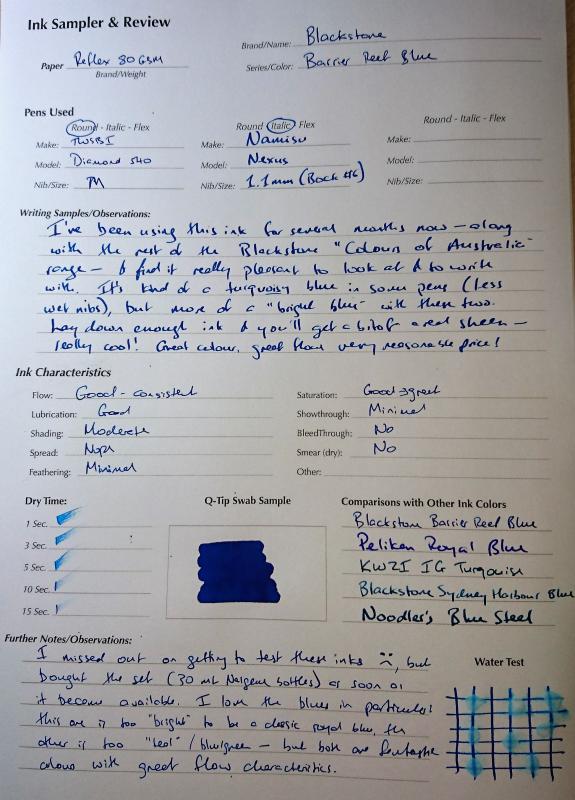 Ink Sampler & Review
Brand/Name: Blackstone
Paper Reflex 80 GSM
Brand/Weight
Series/Color: Barrier Reef Blue
Pens Used
Round - Italic - Flex
Make: TWSBI
Model: Diamond 540
Nib/Size: M
Round Italic Flex
Make: Namisu
Model: Nexus
Nib/Size: 1.1mm (Bock #6)
Round - Italic - Flex
Make:
Model:
Nib/Size:
Writing Samples/Observations:
I've been using this ink for several months now – along
with the rest of the Blackstone "Colours of Australia"
range – & find it really pleasant to look at & to write
with. It's kind of a turquoisy blue in some pens (less
wet nibs), but more of a "bright blue" with these two.
Lay down enough ink & you'll get a bit of a red sheen –
really cool! Great colour, great flow very reasonable price!
Ink Characteristics
Flow: Good - consistent
Lubrication: Good
Shading: Moderate
Spread: Nope
Feathering: Minimal
Saturation: Good → great
Showthrough: Minimal
BleedThrough: No
Smear (dry): No
Other:
Dry Time:
1 Sec.
3 Sec.
5 Sec.
10 Sec.
15 Sec.
Q-Tip Swab Sample
Comparisons with Other Ink Colors
Blackstone Barrier Reef Blue
Pelikan Royal Blue
KWZI IG Turquoise
Blackstone Sydney Harbour Blue
Noodler's Blue Steel
Further Notes/Observations:
I missed out on getting to test these inks :(, but
bought the set (30 ml Nalgene bottles) as soon as
it became available. I love the blues in particular!
this one is too "bright" to be a classic royal blue, the
other is too "teal" / blue/green – but both are fantastic
colours with great flow characteristics.
Water Test